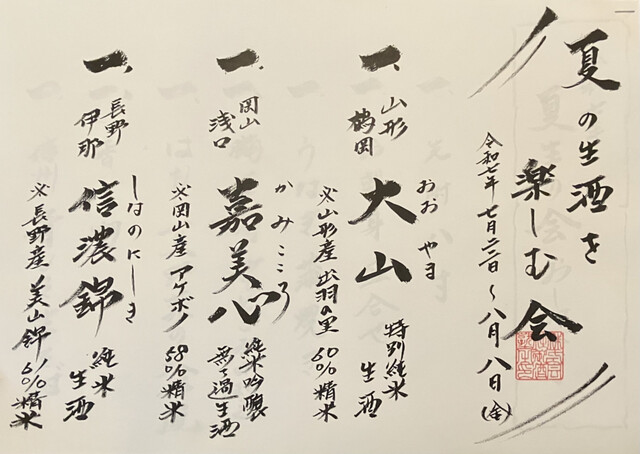 夏の生酒を
楽しむ会
令和七年 七月二二日〜八月八日(金)
一、
山形
鶴岡
おおやま
大山
特別純米
生酒
※山形産 出羽の里 60%精米
一、
岡山
浅口
かみこころ
嘉美心
純米吟醸
無ろ過生酒
※岡山産 アケボノ 58%精米
一、
長野
伊那
しなのにしき
信濃錦
純米
生酒
※長野産 美山錦 60%精米